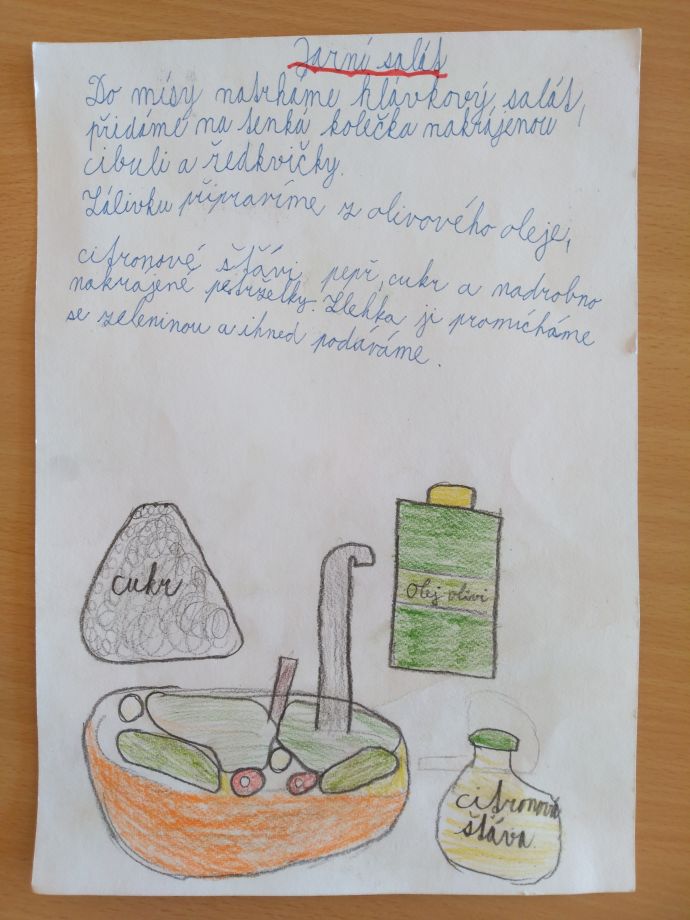 Jarní salát
Do mísy natrháme hlávkový salát,
přidáme na tenká kolečka nakrájenou
cibuli a ředkvičky.
Zálivku připravíme z olivového oleje,
citronové šťávi, pepř, cukr a nadrobno
nakrájené petrželky. Zlehka ji promícháme
se zeleninou a ihned podáváme.
cukr
Olej olivi
citronová
šťáva